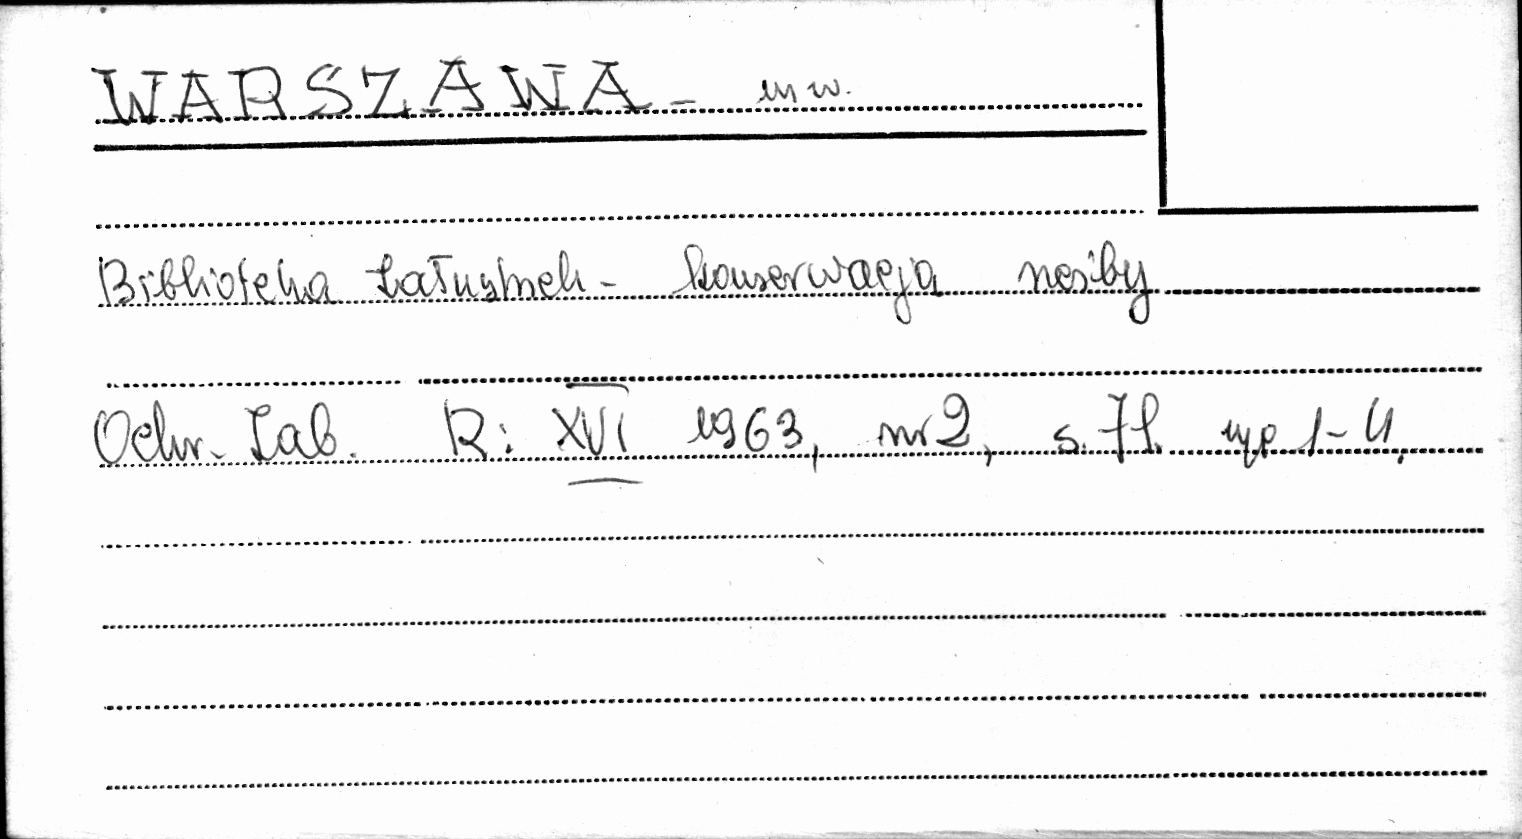 WARSZAWA - m w.
Biblioteka Załuskich - konserwacja rzeźby
Ochr. Zab. R: XVI 1963, nr 2, s. 71. ryc 1-4.